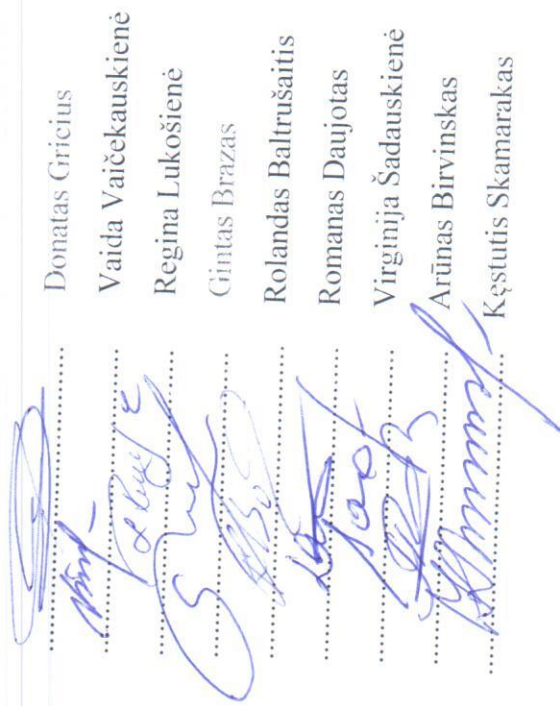 Donatas Gricius
Vaida Vaičekauskienė
Regina Lukošienė
Gintas Brazas
Rolandas Baltrušaitis
Romanas Daujotas
Virginija Šadauskienė
Arūnas Birvinskas
Kęstutis Skamarakas